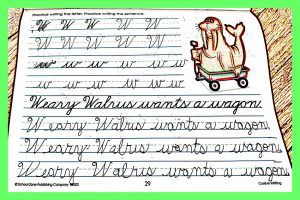 Practice writing the letter. Practice writing the sentence.
W W W W W W
W W W W W W W
w w w w w w w
w w w w w w w
Weary Walrus wants a wagon.
Weary Walrus wants a wagon.
Weary Walrus wants a wagon.
Weary Walrus wants a wagon.
© School Zone Publishing Company
29
Cursive Writing